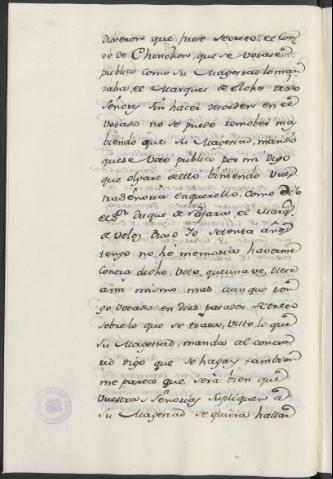 dixeron que fuese secreto, el Con
de de Chinchon, que se votase
publico como su Magestad lo man
daba, el Marques de Elche dixo
Señores sin hacer desorden en el
votado no se puede remober mas
biendo que Su Magestad, mandó
que se vote publico por mi digo
que
tradenoria en quererllo, como dixo
el S.or duque de Najara, el Marq.
de Velez Dixo Yo setenta años
tengo no he memoria haverme
Contra dicho, Voto, que una ve, diese
a mi mismo, mas aunque ten
go Votado en dias pasados Secreto
sobre lo que se trata, visto lo que
su Magestad, manda al contra
rio digo que se haga, y tambien
me pareco que será bien que
Vuestras Señorias supliquen á
Su Magestad se quiera hallar